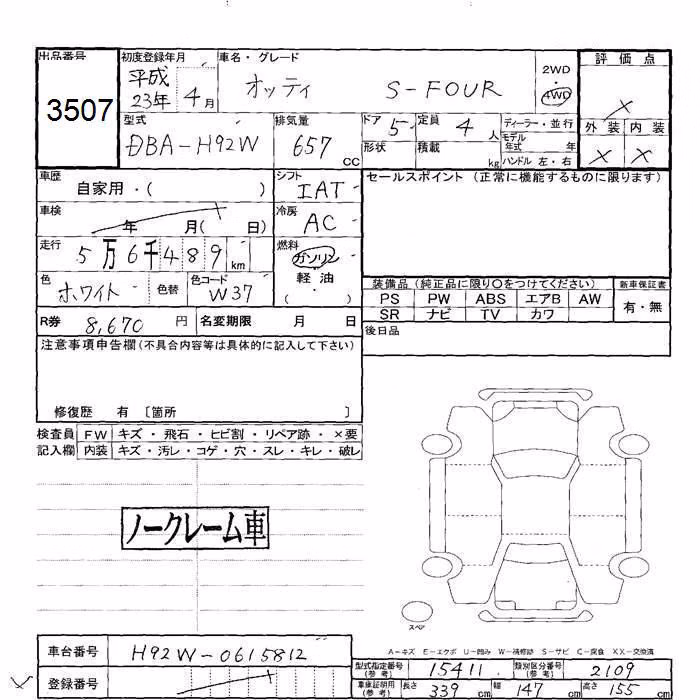 出品番号 初度登録年月 車名・グレード 評価点
3507 平成23年 4月 オッティ S-FOUR 2WD 4WD ×
型式 排気量 ドア 定員 ディーラー・並行 外装 内装
DBA-H92W 657cc 5 4人 モデル年式 年 × ×
形状 積載 kg ハンドル 左・右
車歴 自家用・( ) シフト IAT セールスポイント (正常に機能するものに限ります)
車検 年 月( 日) 冷房 AC
走行 5万6千489km 燃料 ガソリン
軽油
( ・ )
色 ホワイト 色替 色コード W37 装備品(純正品に限り○をつけてください) 新車保証書
PS PW ABS エアB AW 有・無
SR ナビ TV カワ
R券 8,670円 名変期限 月 日 後日品
注意事項申告欄(不具合内容等は具体的に記入して下さい)
修復歴 有 〔箇所 〕
検査員 FW キズ・飛石・ヒビ割・リペア跡・×要
記入欄 内装 キズ・汚レ・コゲ・穴・スレ・キレ・破レ
ノークレーム車
スペア
A-キズ E-エクボ U-凹み W-補修跡 S-サビ C-腐食 XX-交換済
車台番号 H92W-0615812 型式指定番号(参考) 15411 類別区分番号(参考) 2109
登録番号 車庫証明用(参考) 長さ 339cm 幅 147cm 高さ 155cm